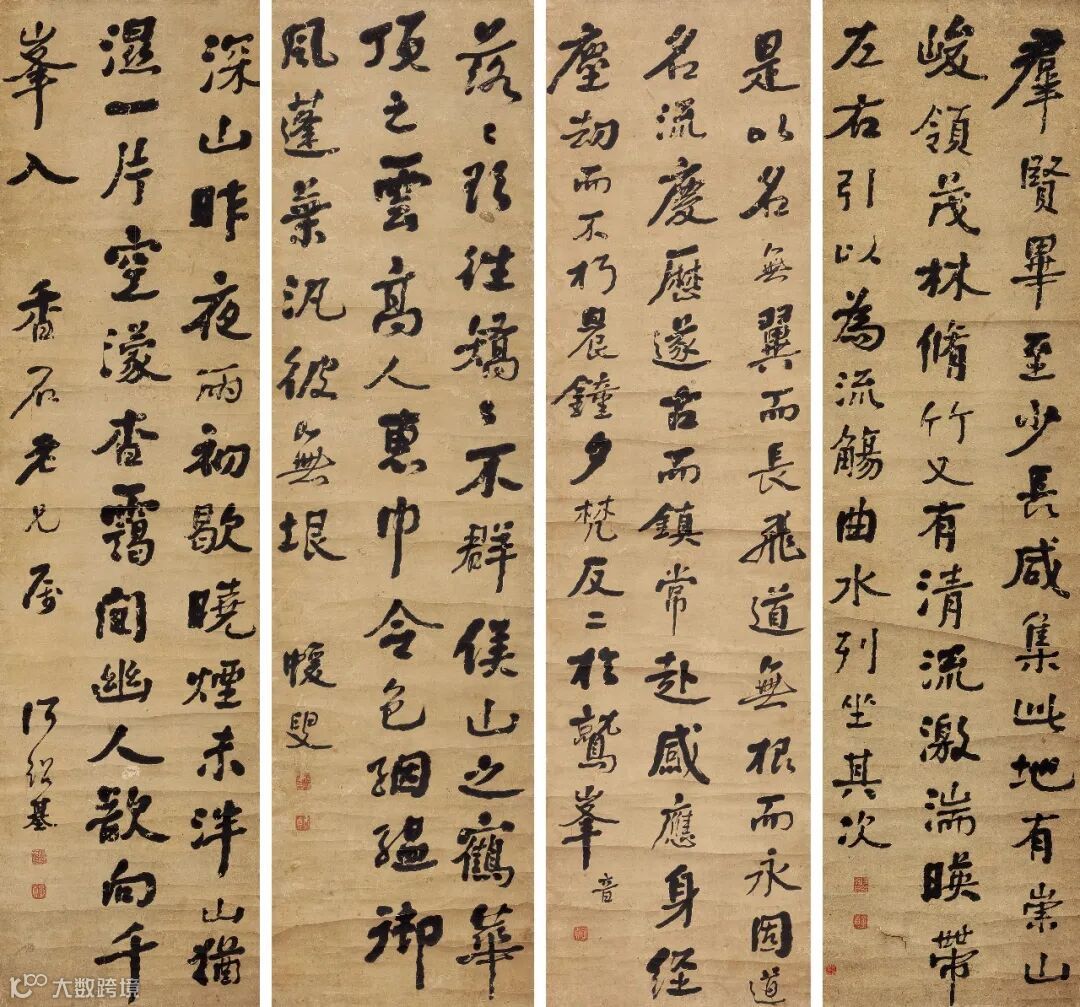 羣賢畢至少長咸集此地有崇山
峻領茂林脩竹又有清流激湍暎帶
左右引以為流觴曲水列坐其次
是以名無翼而長飛道無根而永固道
名流慶歷遂古而鎮常赴感應身經
塵劫而不朽晨鐘夕梵交二於鷲峯 音
落〻欲往矯〻不群緱山之鶴華
頂之雲高人惠中令色絪緼御
風蓬葉汎彼無垠 蝯叟
深山昨夜雨初歇曉煙未泮山猶
濕一片空濛杳靄間幽人歗向千
峯入 香石老兄屬 何紹基
大数跨境